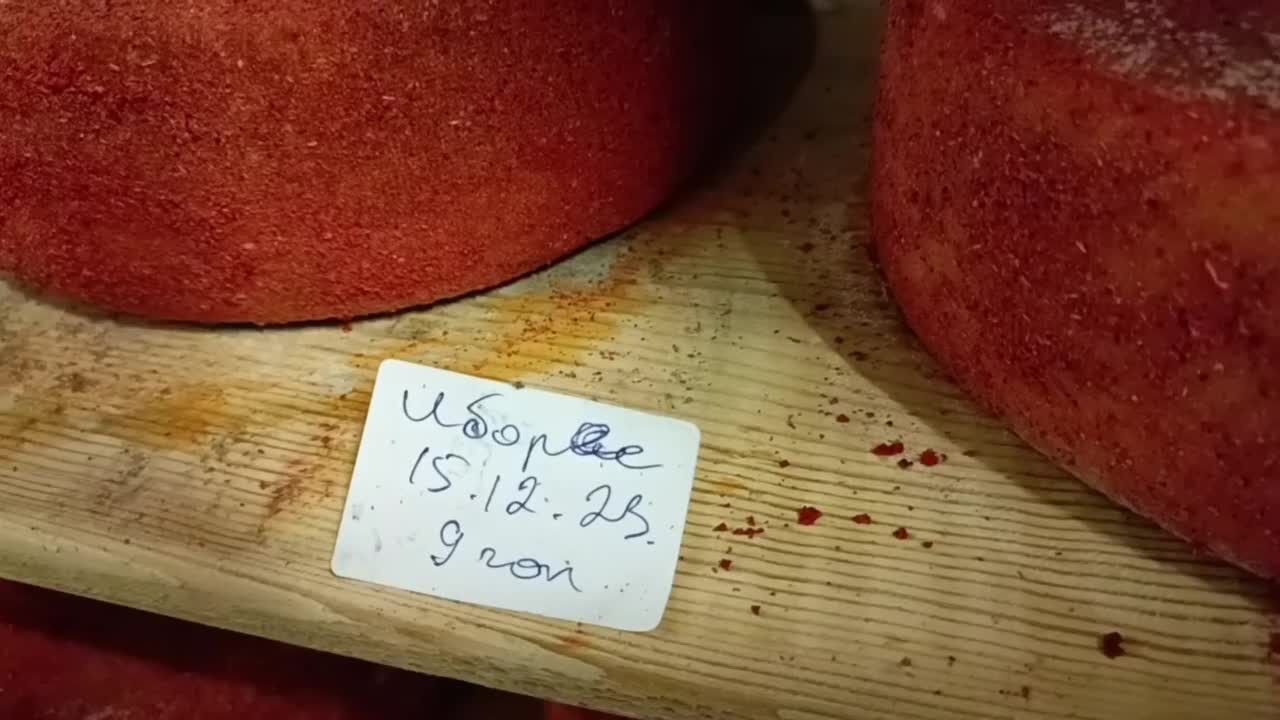 Иборес
15.12.23.
9 гол